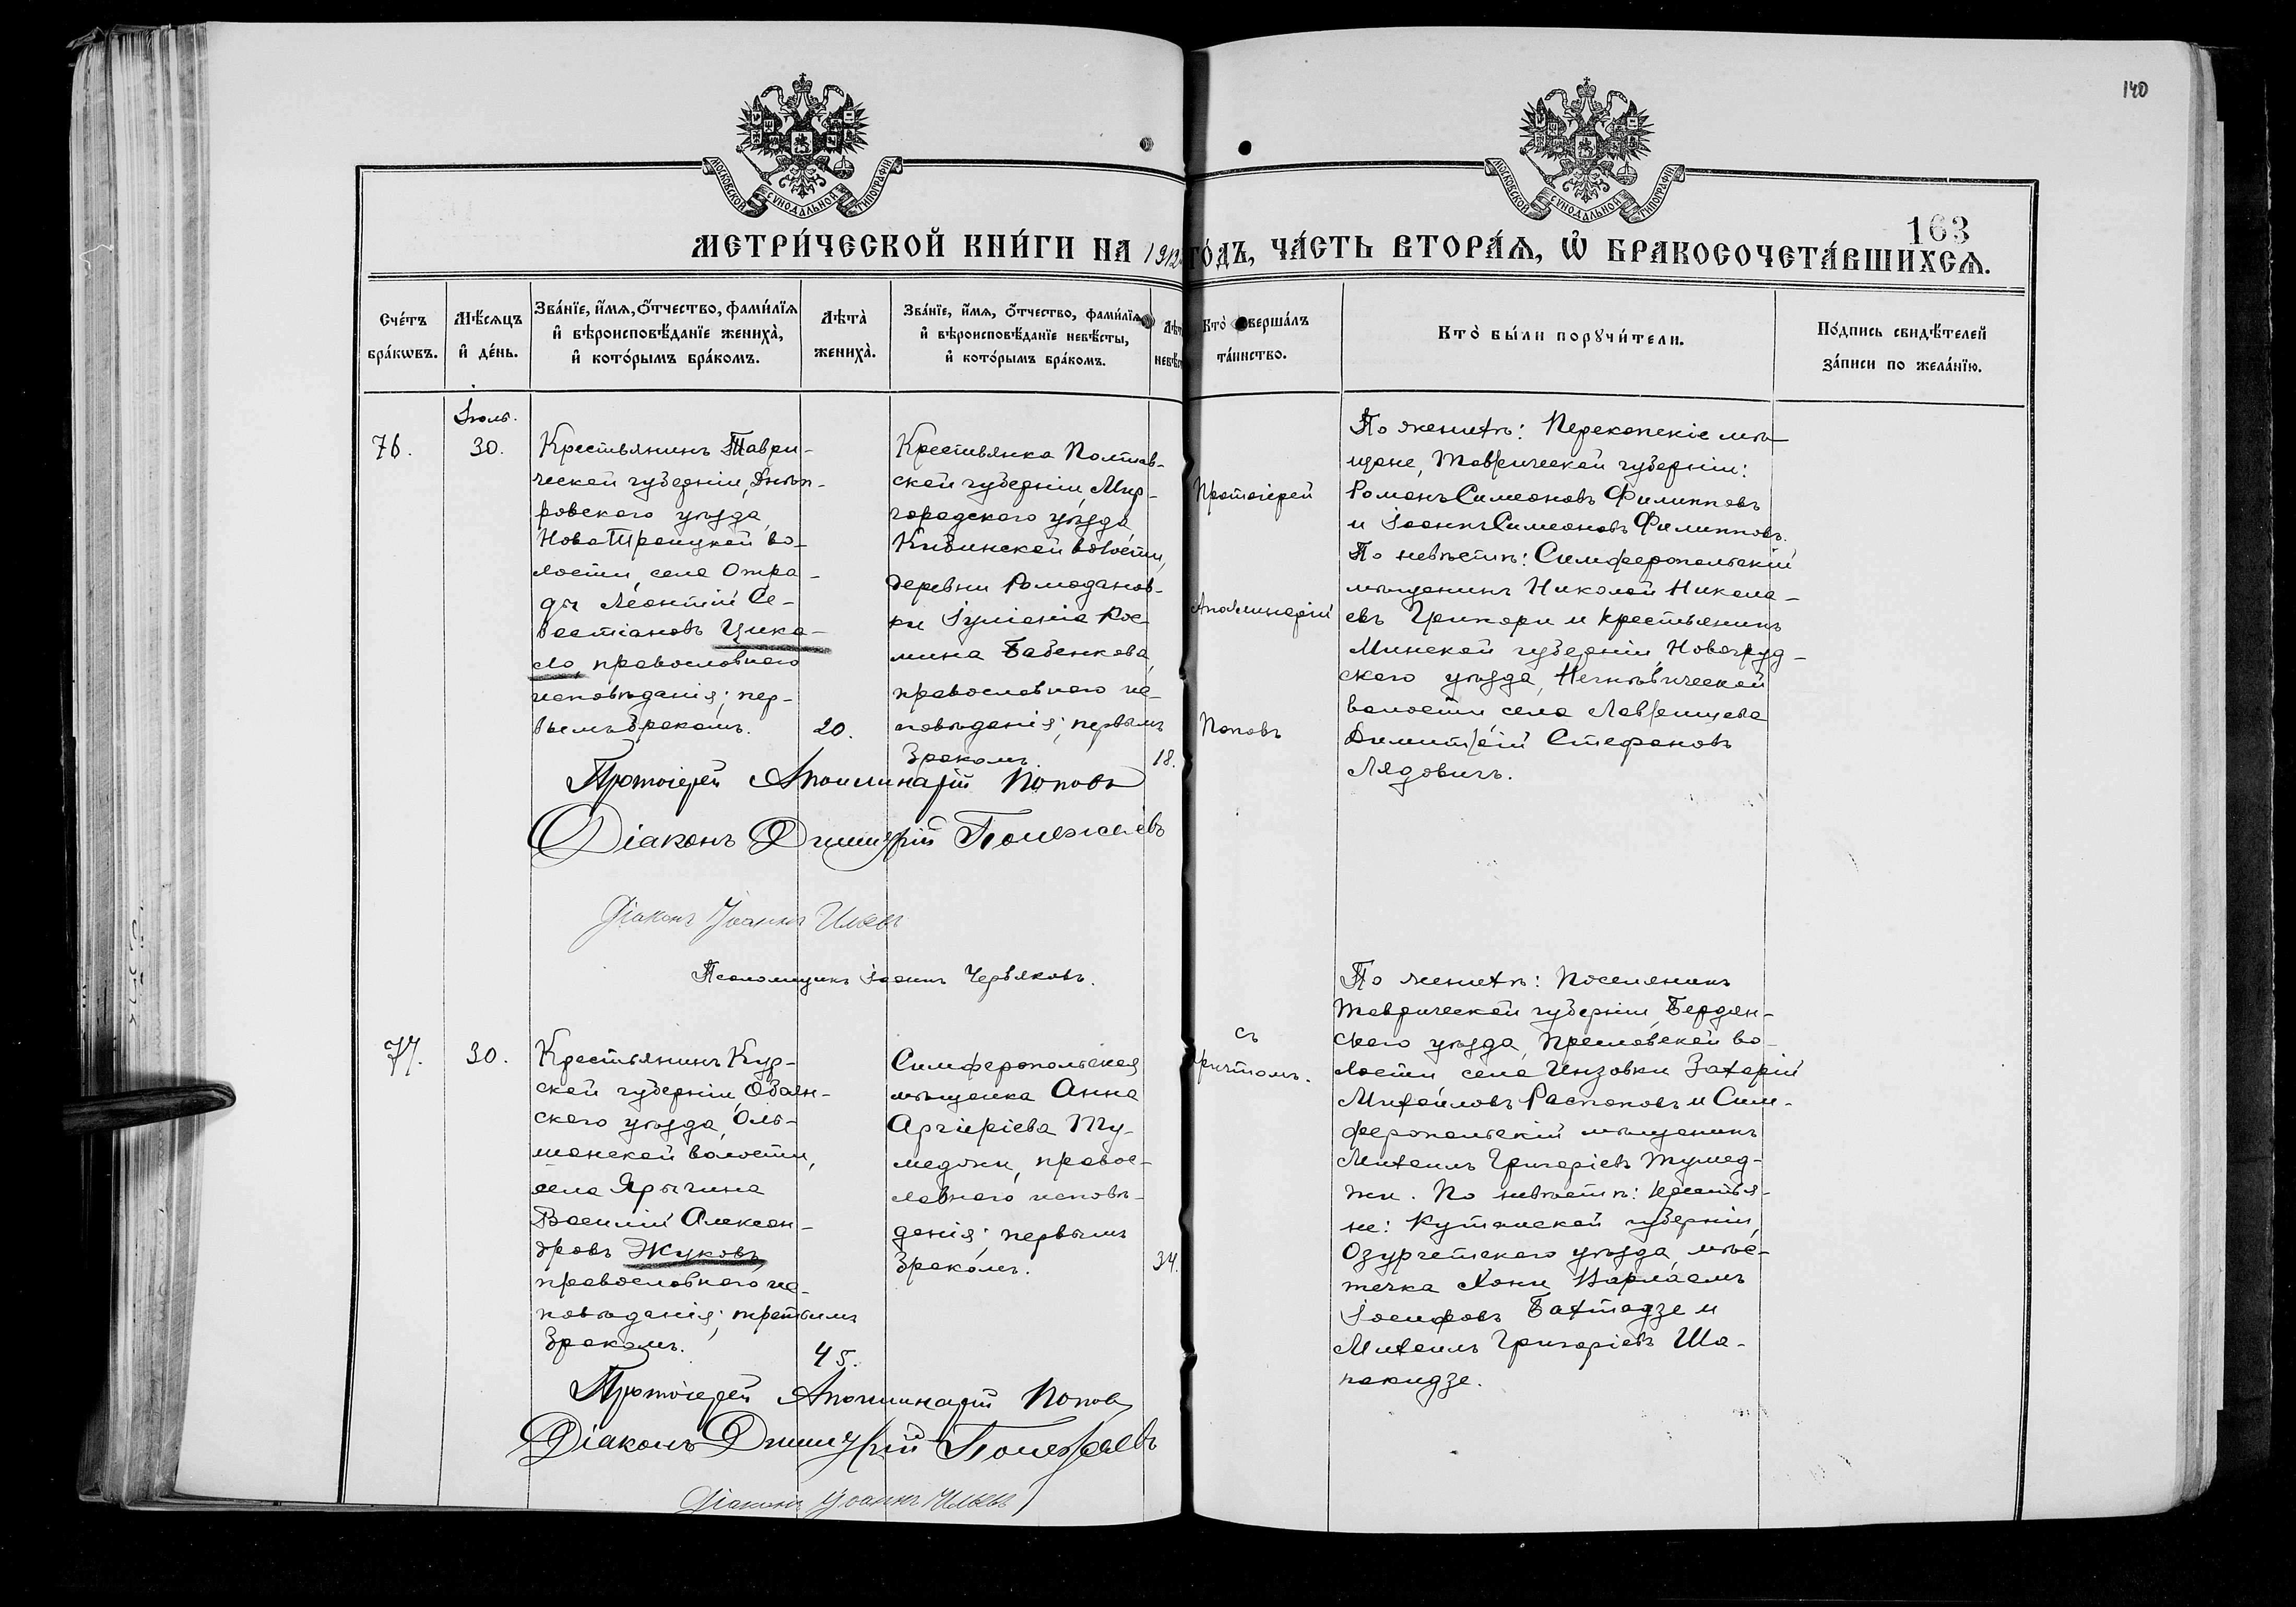 140
МОСКОВСКОЙ СУНОДАЛЬНОЙ ТИПОГРАФІИ
МОСКОВСКОЙ СУНОДАЛЬНОЙ ТИПОГРАФІИ
163
МЕТРИ́ЧЕСКОЙ КНИ́ГИ НА 1912 ГО́ДЪ, ЧА́СТЬ ВТОРА́Ѧ, Ѡ҆ БРАКОСОЧЕТА́ВШИХСѦ.
Сче́тъ
бра́кѡвъ.
Мѣ́сѧцъ
и҆ де́нь.
Зва́нїе, и҆́мѧ, ѻ҆́тчество, фами́лїѧ
и҆ вѣроисповѣ́данїе жениха̀,
и҆ кото́рымъ бра́комъ.
Лѣта̀
жениха̀.
Зва́нїе, и҆́мѧ, ѻ҆́тчество, фами́лїѧ
и҆ вѣроисповѣ́данїе невѣ́сты,
и҆ кото́рымъ бра́комъ.
Лѣт
невѣст
Кто̀ совершалъ
та́инство.
Кто̀ бы́ли порꙋчи́тели.
По́дпись свидѣ́телей
за́писи по жела́нїю.
Іюль.
76.
30.
Крестьянинъ Таври-
ческой губерніи, Днѣп-
ровского уѣзда,
Ново Троицкой во-
лости, села Отра-
ды Леонтій Се-
вастіановъ Цика-
ло, православнаго
исповѣданія; пер-
вымъ бракомъ.
20.
Крестьянка Полтав-
ской губерніи, Мир-
городского уѣзда,
Кибинской волости,
деревни Ромоданов-
ки Іуліанія Кос-
мина Бабенкова,
православного ис-
повѣданія; первымъ
бракомъ.
18.
Протоіерей
Аполлинарій
Поповъ
По женихѣ: Перекопскіе мѣ-
щане, Таврической губерніи:
Романъ Симеоновъ Филипповъ
и Іоаннъ Симеоновъ Филипповъ.
По невѣстѣ: Симферопольскій
мѣщанинъ Николай Никола-
евъ Григори и крестьянинъ
Минской губерніи, Новогруд-
ского уѣзда,
волости, села Лавришева
Димитрій Стефановъ
Лядовичъ.
Протоіерей Аполлинарій Поповъ
Діаконъ Димитрій Полежаевъ
Діаконъ Іоаннъ
Псаломщикъ Іоаннъ Червяковъ.
77.
30.
Крестьянинъ Кур-
ской губерніи, Обоян-
ского уѣзда, Оль-
шанской волости,
села Ярыгина
Василій Алексан-
дровъ Жуковъ,
православного ис-
повѣданія; третьимъ
бракомъ.
45.
Симферопольская
мѣщанка Анна
Аргиріева Ту-
меджи, правос-
лавнаго исповѣ-
данія; первымъ
бракомъ.
34.
съ
причтомъ.
По женихѣ: Поселянинъ
Таврической губерніи, Бердян-
ского уѣзда, Преславской во-
лости, села Инзовки Захарій
Михайловъ Распоповъ и Сим-
феропольскій мѣщанинъ
Михаилъ Григоріевъ Тумед-
жи. По невѣстѣ: крестья-
не: Кутаиской губерніи,
Озургетского уѣзда, мѣс-
течка Хони Варлаамъ
Іосифовъ Бахтадзе и
Михаилъ Григоріевъ Ша-
пакидзе.
Протоіерей Аполлинарій Поповъ
Діаконъ Димитрій Полежаевъ
Діаконъ Іоаннъ